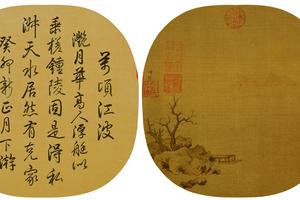 萬頃江波
灔月華高人浮艇似
乘槎鍾陵固是得私
淑天水居然有克家
癸卯新正月下